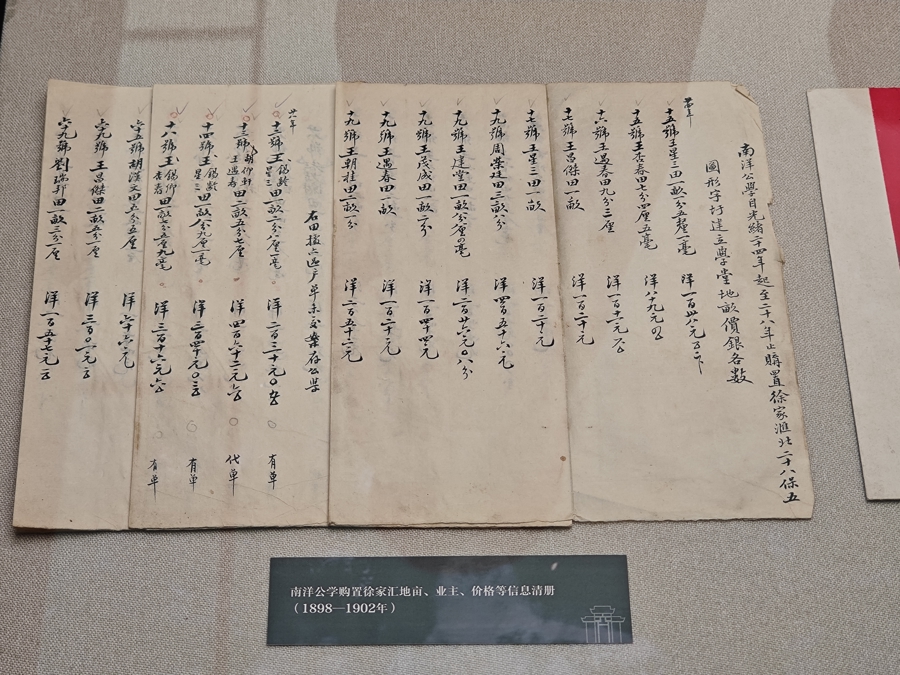 南洋公學自光緒二十四年起至二十八年止購置徐家滙北二十八保五
圖形字圩建立學堂地畝價銀各數
十五號王星三田一畝分五釐一毫 洋一百卅八元
十五號王杏春田七分四厘五毫 洋八十九元
十六號王遇春田九分三厘 洋一百十一元
十七號王昌傑田一畝 洋一百二十元
十七號王星三田一畝 洋一百二十元
十九號周榮廷田三畝八分 洋四百五十六元
十九號王建堂田一畝 洋二百卅六元〇八分
十九號王茂成田一畝二分 洋一百四十四元
十九號王遇春田一畝 洋一百二十元
十九號王朝桂田二畝一分 洋二百五十二元
存公學
廿六年
十二號王錫齡 星三田一畝二分八厘一毫 有單
十三號 田二畝五分七厘 洋四百六十二元 代單
十四號王錫齡 星三田一畝 分九厘一毫 有單
十八號王錫仰 杏春田 有單
六十五號胡漢文田五分五厘 洋六十六元
六十九號王昌傑田二畝五分一厘 洋三百〇一元
六十九號劉瑞邦田一畝三分一厘 洋一百五十七元
南洋公学购置徐家汇地亩、业主、价格等信息清册
（1898—1902年）